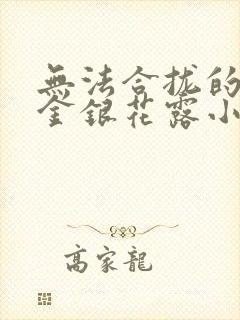 無法合拢的
金銀花露小
高家龍